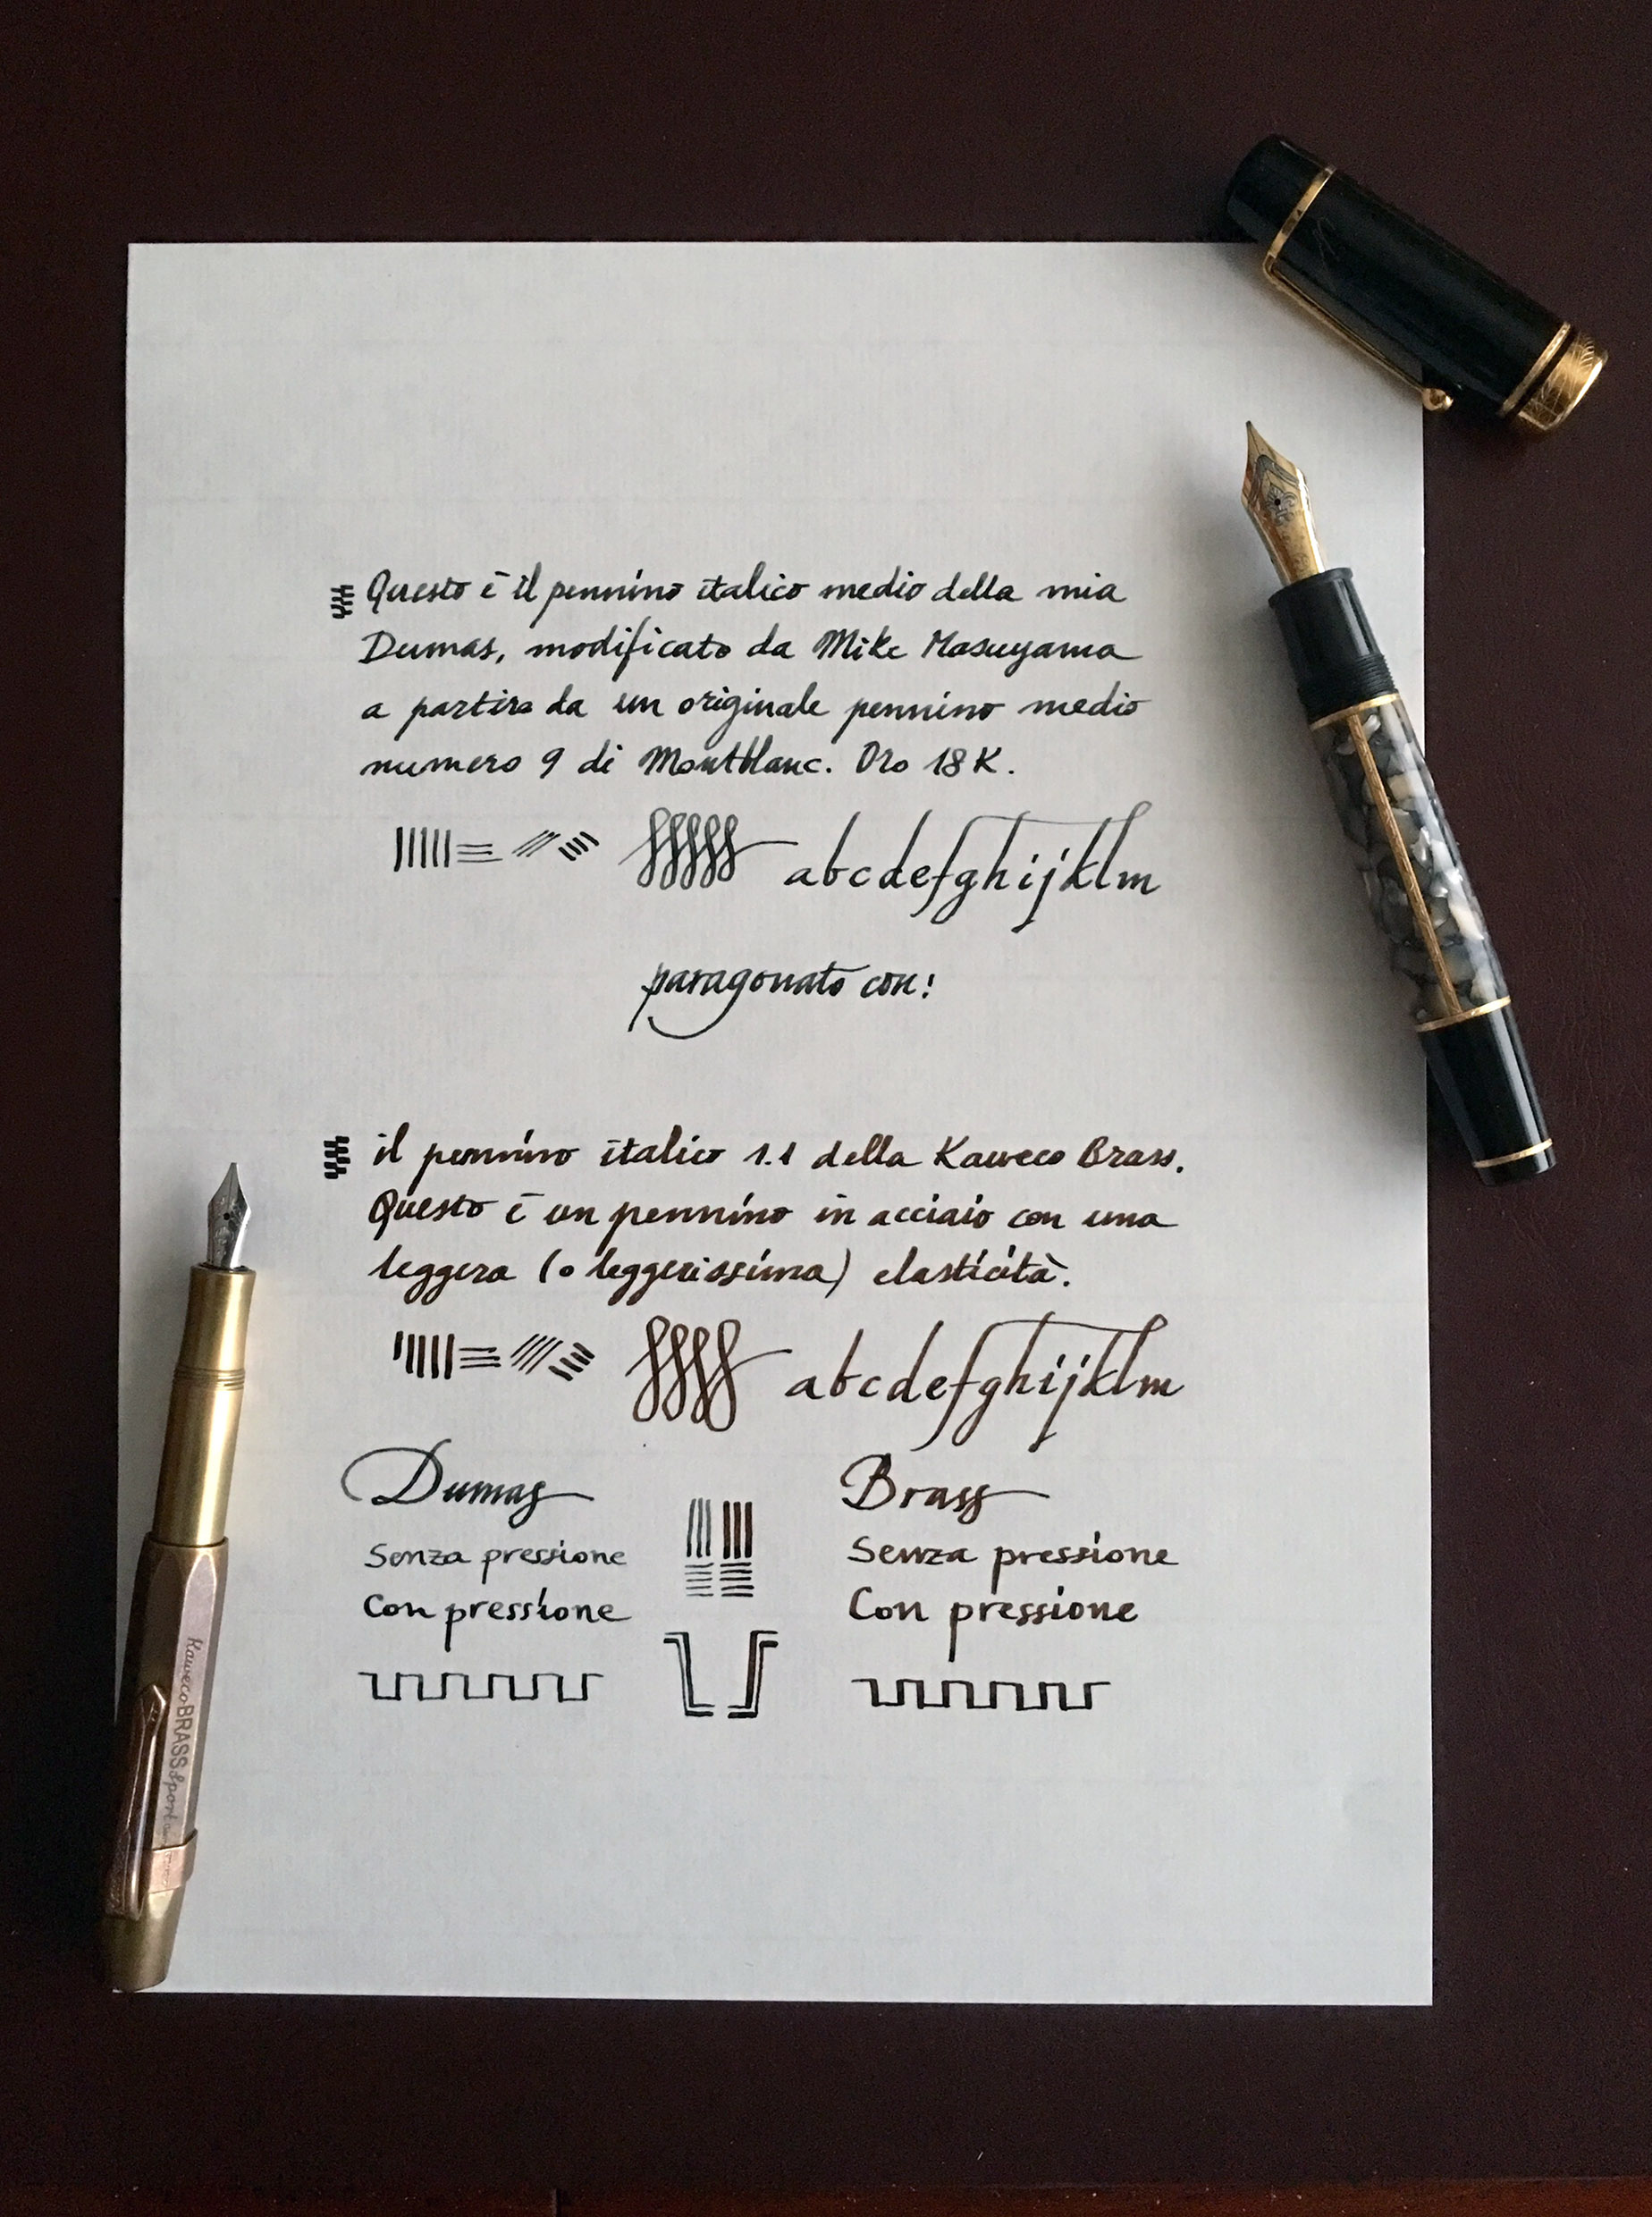 Questo è il pennino italico medio della mia
Dumas, modificato da Mike Masuyama
a partire da un originale pennino medio
numero 9 di Montblanc. Oro 18K.
abcdefghijklm
paragonato con:
il pennino italico 1.1 della Kaweco Brass.
Questo è un pennino in acciaio con una
leggera (o leggerissima) elasticità.
abcdefghijklm
Dumas
Brass
Senza pressione
Senza pressione
Con pressione
Con pressione
Kaweco BRASS Sport